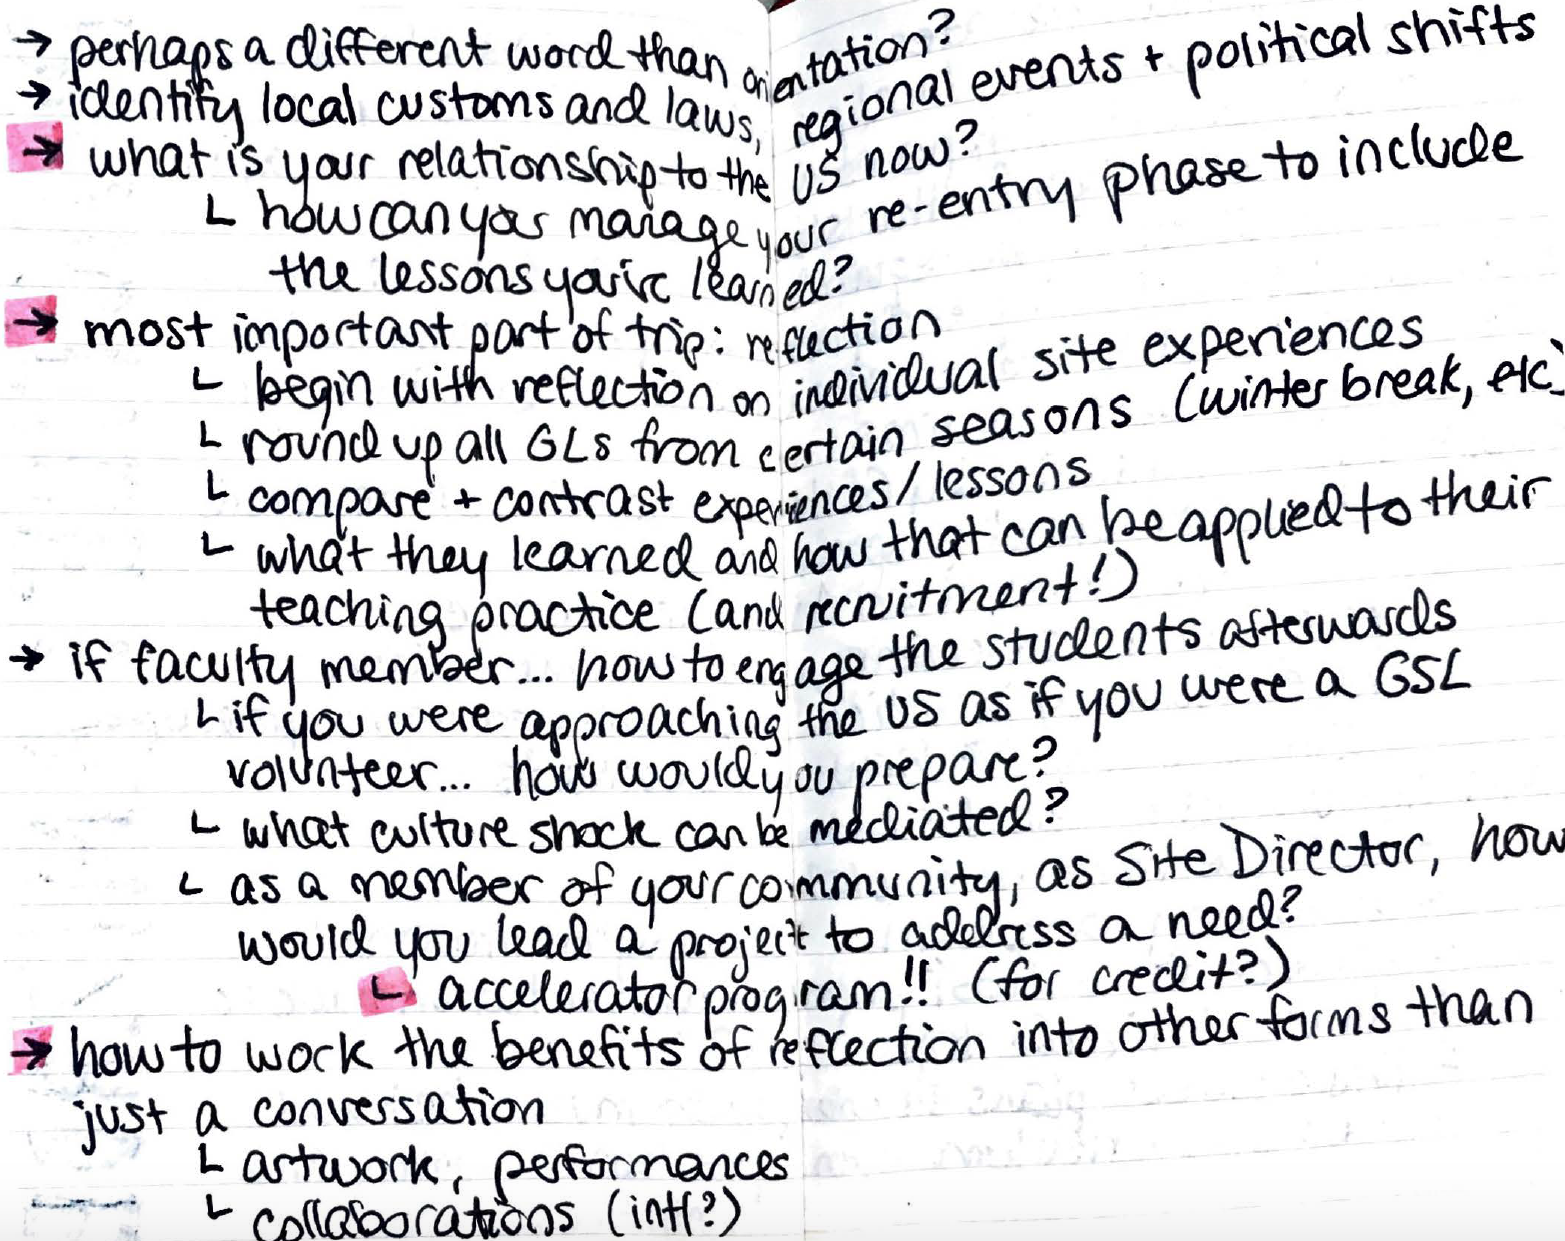 → perhaps a different word than orientation?
→ identify local customs and laws, regional events + political shifts
→ what is your relationship to the US now?
└ how can you manage your re-entry phase to include
the lessons you've learned?
→ most important part of trip: reflection
└ begin with reflection on individual site experiences
└ round up all GLs from certain seasons (winter break, etc.
└ compare + contrast experiences/lessons
└ what they learned and how that can be applied to their
teaching practice (and recruitment!)
→ if faculty member... how to engage the students afterwards
└ if you were approaching the US as if you were a GSL
volunteer... how would you prepare?
└ what culture shock can be mediated?
└ as a member of your community, as Site Director, how
would you lead a project to address a need?
└ accelerator program!! (for credit?)
→ how to work the benefits of reflection into other forms than
just a conversation
└ artwork, performances
└ collaborations (intl?)